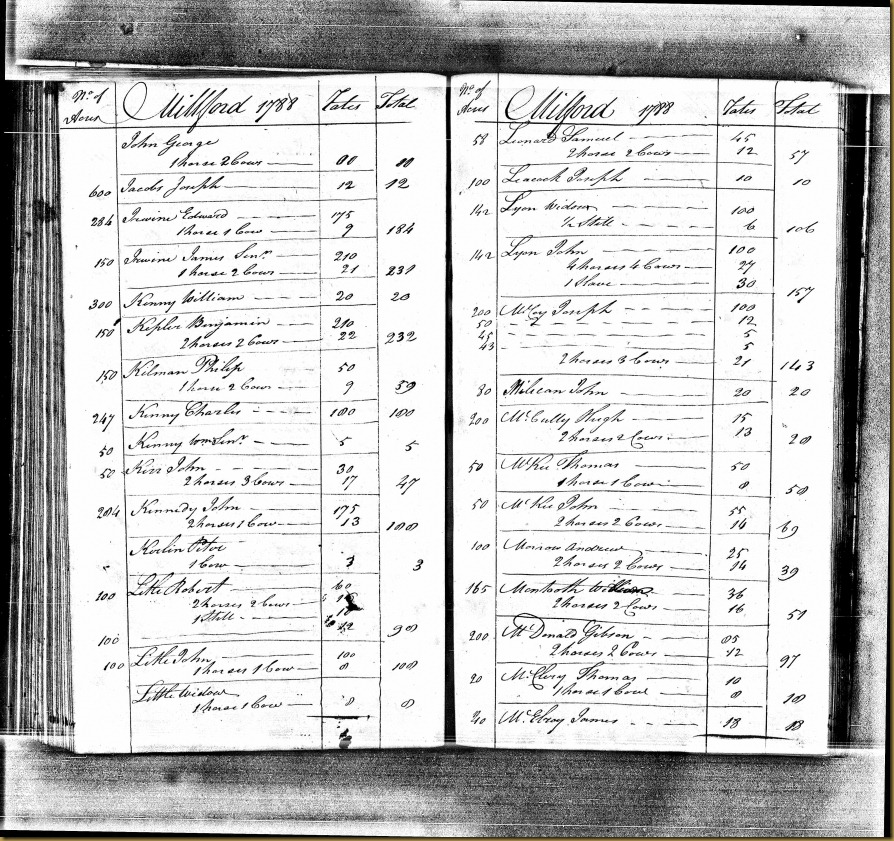 No. of Acres Millford 1788 Rates Total
John George
1 horse 2 Cows
600 Jacobs Joseph 12 12
284 Irwine Edward 175
1 horse 1 Cow 9 184
150 Irwine James Senr. 210
1 horse 2 Cows 21 231
300 Kenny William 20 20
150 Kepler Benjamin 210
2 horses 2 Cows 22 232
150 Kilman Philip 50
1 horse 2 Cows 9 59
247 Kenny Charles 100 100
50 Kenny Wm Senr. 5 5
50 Kerr John 30
2 horses 3 Cows 17 47
204 Kennedy John 175
2 horses 1 Cow 13 188
Peter
1 Cow 3 3
100 Little Robert 60
2 horses 2 Cows
1 Still
100 12 98
100 Little John 100
1 horses 1 Cow 8 108
Little Widow
1 horse 1 Cow 8 8
No. of Acres Milford 1788 Rates Total
58 Leonard Samuel 45
2 horse 2 Cows 12 57
100 Leacock Joseph 10 10
142 Lyon Widow 100
1/2 Still 6 106
142 Lyon John 100
4 horses 4 Cows 27
1 Slave 30 157
200 McCoy Joseph 100
50 12
45 5
43 5
2 horses 3 Cows 21 143
30 Milican John 20 20
200 McCully Hugh 15
2 horses 2 Cows 13 28
50 McKee Thomas 50
1 horse 1 Cow 8 58
50 McKee John 55
2 horses 2 Cows 14 69
100 Morrow Andrew 25
2 horses 2 Cows 14 39
165 Montooth William 36
2 horses 2 Cows 16 51
200 McDonald Gibson 85
2 horses 2 Cows 12 97
20 McElroy Thomas 10
1 horse 1 Cow 8 18
McElroy James 18 18